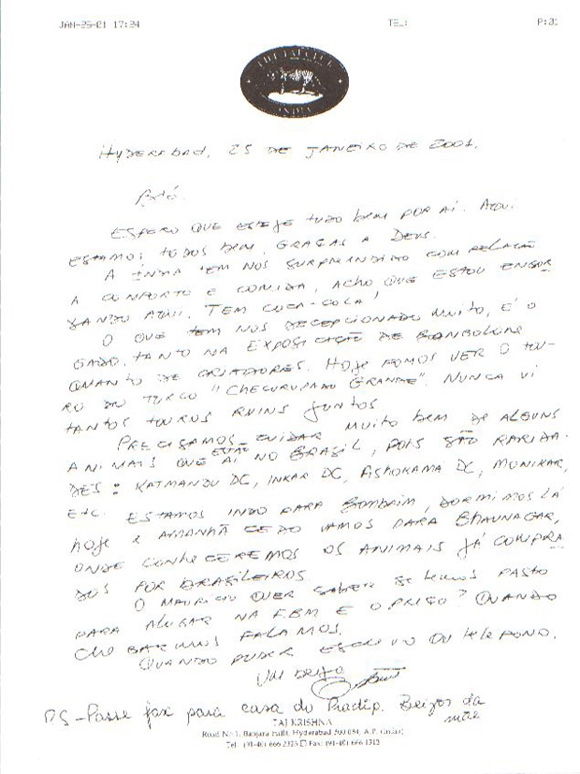 JAN-25-01 17:34 TEL: P:01
INDIA
HYDERABAD, 25 DE JANEIRO DE 2001.
ESPERO QUE ESTEJE TUDO BEM POR AÍ. AQUI
ESTAMOS TODOS BEM, GRAÇAS A DEUS.
A ÍNDIA TEM NOS SURPREENDIDO COM RELAÇÃO
A CONFORTO E COMIDA, ACHO QUE ESTOU ENGOR
DANDO AQUI. TEM COCA-COLA!
O QUE TEM NOS DECEPCIONADO MUITO, É O
GADO, TANTO NA EXPOSIÇÃO DE BANGALORE
QUANTO DE CRIADORES. HOJE FOMOS VER O TOU-
RO DO TURCO " GRANDE". NUNCA VI
TANTOS TOUROS RUINS JUNTOS
PRECISAMOS CUIDAR MUITO BEM DE ALGUNS
ANIMAIS QUE ESTÃO AÍ NO BRASIL, POIS SÃO RARIDA-
DES: KATMANDU DC, INKAR DC, ASHOKAMA DC, MONIKAR,
ETC. ESTAMOS INDO PARA BOMBAIM, DORMIMOS LÁ
HOJE E AMANHÃ CEDO VAMOS PARA BHAVNAGAR,
ONDE CONHECEREMOS OS ANIMAIS JÁ COMPRA
DOS POR BRASILEIROS.
O MAURICIO QUER SABER SE TEMOS PASTO
PARA ALUGAR NA FBM E O PREÇO? QUANDO
CHEGARMOS FALAMOS.
QUANDO PUDER ESCREVO OU TELEFONO.
UM BEIJO
PS-Passe fax para casa do Pradip. Beijos da
mãe
TAJ KRISHNA
Road No 1, Banjara Hills, Hyderabad 500 034, A.P. (India)
Tel. (91-40) 666 2323 Fax: (91-40) 666 1313